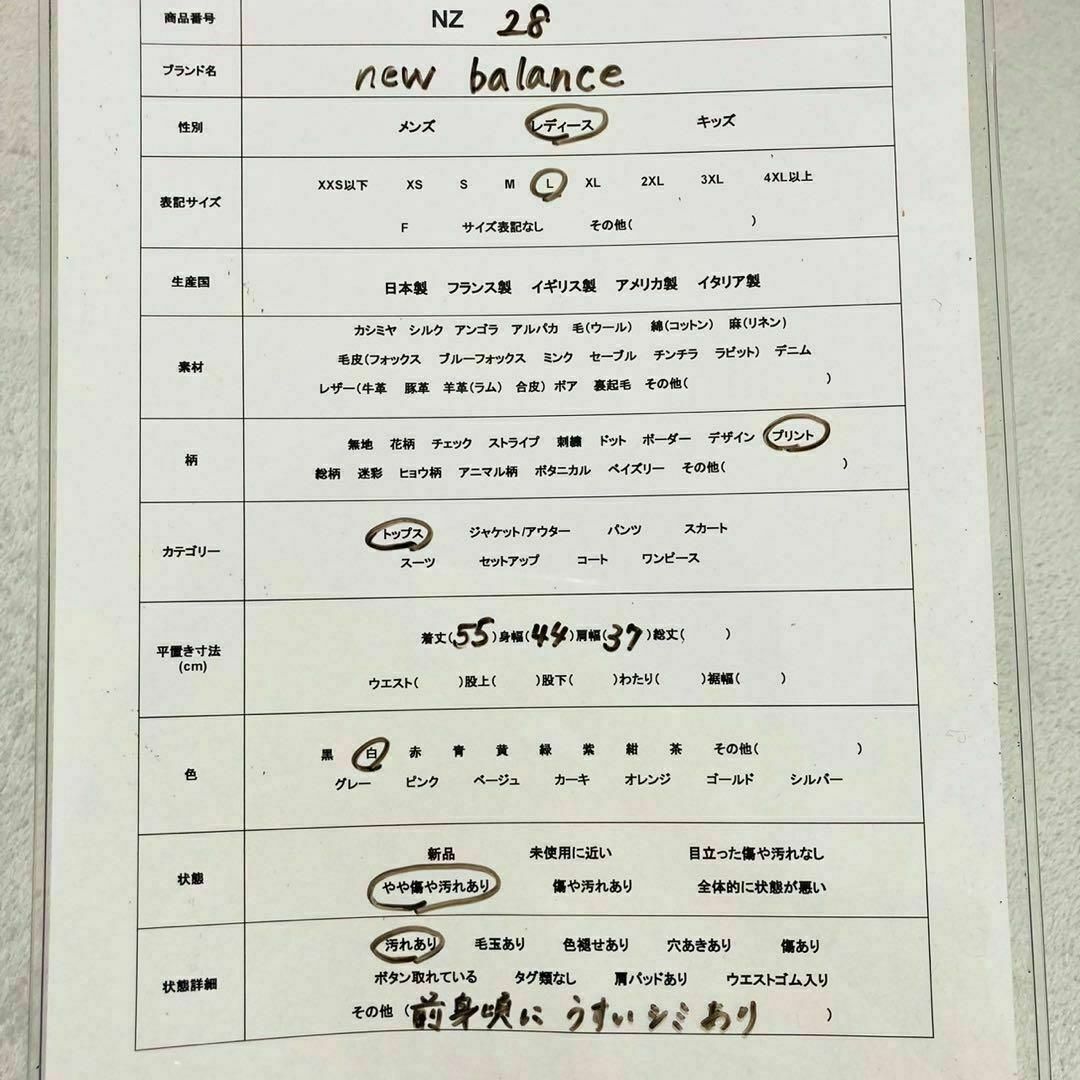 商品番号 NZ 28
ブランド名 new balance
性別 メンズ レディース キッズ
表記サイズ XXS以下 XS S M L XL 2XL 3XL 4XL以上
F サイズ表記なし その他( )
生産国 日本製 フランス製 イギリス製 アメリカ製 イタリア製
カシミヤ シルク アンゴラ アルパカ 毛(ウール) 綿(コットン) 麻(リネン)
素材 毛皮(フォックス ブルーフォックス ミンク セーブル チンチラ ラビット) デニム
レザー(牛革 豚革 羊革(ラム) 合皮) ボア 裏起毛 その他( )
柄 無地 花柄 チェック ストライプ 刺繍 ドット ボーダー デザイン プリント
総柄 迷彩 ヒョウ柄 アニマル柄 ボタニカル ペイズリー その他( )
カテゴリー トップス ジャケット/アウター パンツ スカート
スーツ セットアップ コート ワンピース
平置き寸法 着丈(55)身幅(44)肩幅(37)総丈( )
(cm) ウエスト( )股上( )股下( )わたり( )裾幅( )
色 黒 白 赤 青 黄 緑 紫 紺 茶 その他( )
グレー ピンク ベージュ カーキ オレンジ ゴールド シルバー
状態 新品 未使用に近い 目立った傷や汚れなし
やや傷や汚れあり 傷や汚れあり 全体的に状態が悪い
汚れあり 毛玉あり 色褪せあり 穴あきあり 傷あり
状態詳細 ボタン取れている タグ類なし 肩パッドあり ウエストゴム入り
その他 (前身頃に うすいシミあり )